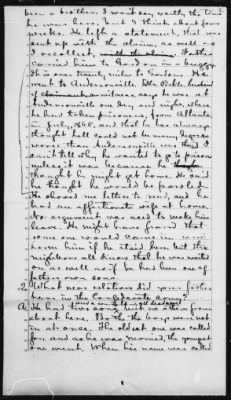 been a brother. I won't say exactly the time
he was here, but I think about four
weeks. He left a statement, that was
sent up with the claim, as well as
I recollect. Father
carried him to Gordon in a buggy.
It is over twenty miles to Gordon. He
went to Andersonville.
says he was at
Andersonville one day and night, where
he had taken prisoners, from Atlanta
in July, and that he has always
thought hell could not be many degrees
worse than Andersonville was. I
can't tell why he wanted to go to prison
unless it was because he
thought he might get home. He said
he thought he would be paroled.
He showed me letters to read, and he
had an affectionate wife at home.
No argument was used to make him
leave. He might have feared that
some one would come in and
harm him if he staid here but the
neighbors all knew that he was waited
on as well as if he had been one of
father's own sons.
Q What near relations did your father
have in the Confederate Army?
A He had two sons
about here. Both the boys were not
in at once. The oldest one was called
for, and as he was married, the youngest
one went. When his name was called